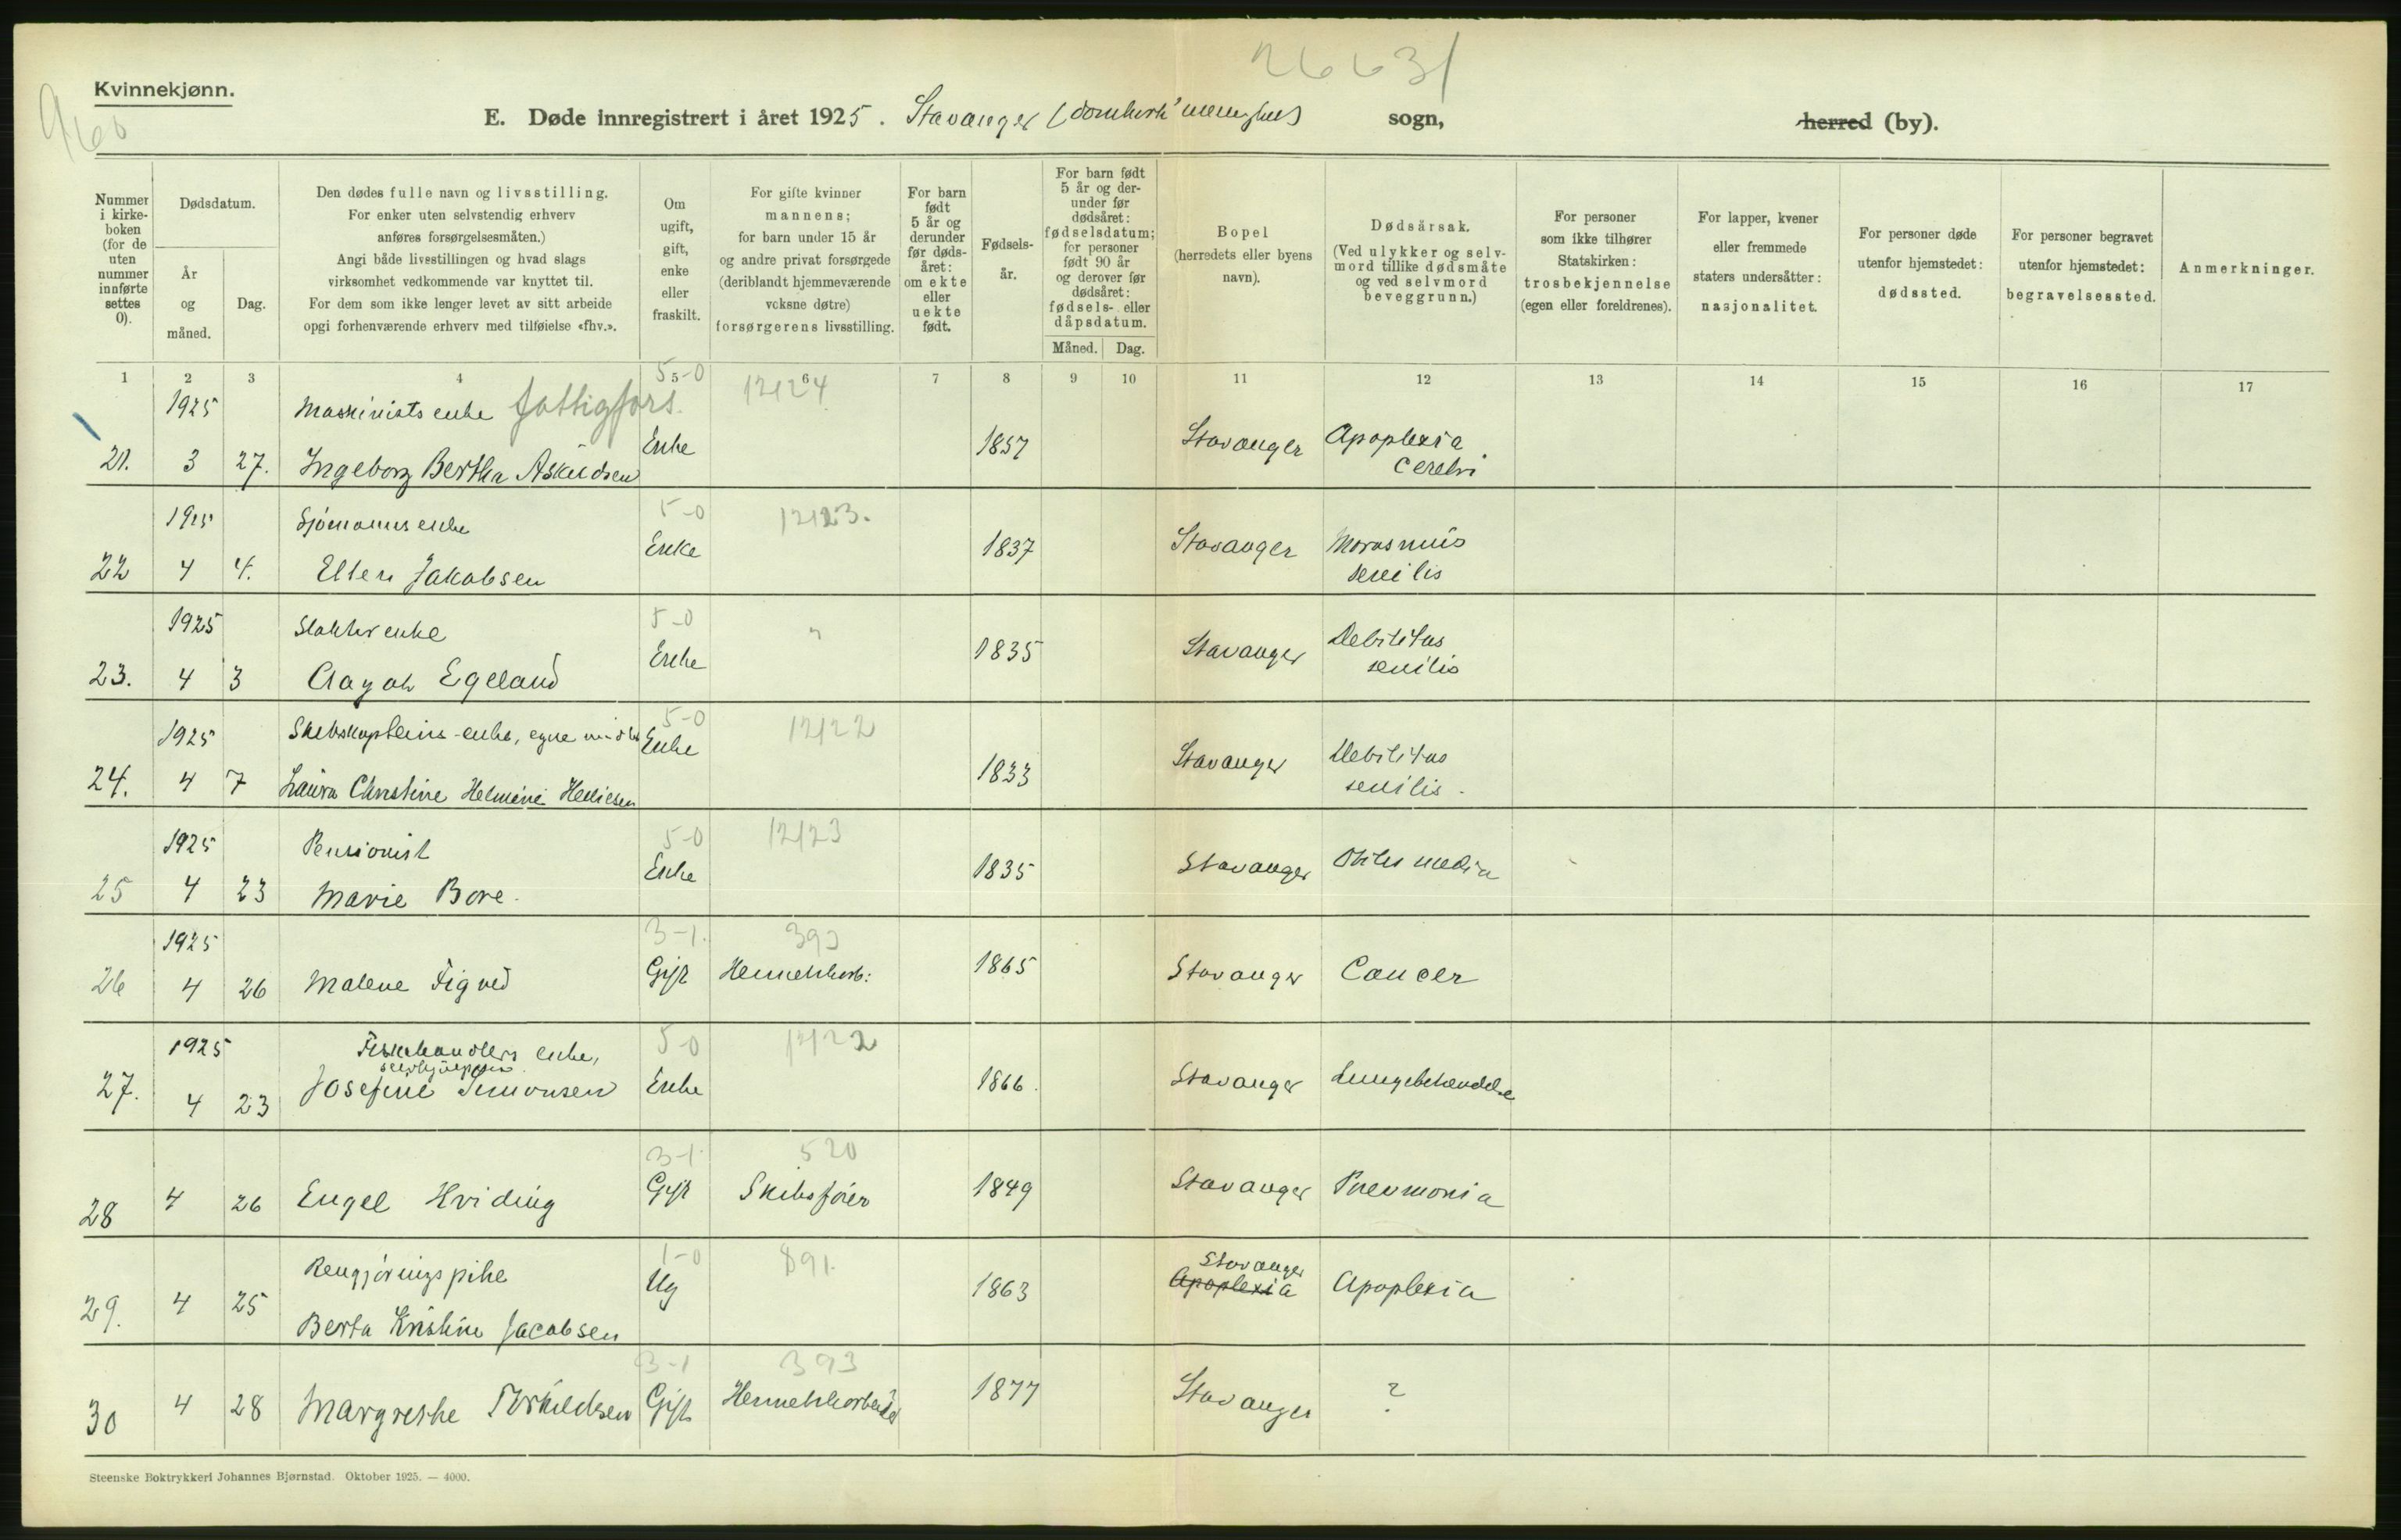 26631
960
Kvinnekjønn.
E. Døde innregistrert i året 1925. Stavanger (domkirk' menighet) sogn, herred (by).
Nummer i kirke-boken (for de uten nummer innførte settes 0).
Dødsdatum.
År og måned.
Dag.
Den dødes fulle navn og livsstilling.
For enker uten selvstendig erhverv
anføres forsørgelsesmåten.)
Angi både livsstillingen og hvad slags
virksomhet vedkommende var knyttet til.
For dem som ikke lenger levet av sitt arbeide
opgi forhenværende erhverv med tilføielse «fhv.».
Om ugift, gift, enke eller fraskilt.
For gifte kvinner
mannens;
for barn under 15 år
og andre privat forsørgede
(deriblandt hjemmeværende
voksne døtre)
forsørgerens livsstilling.
For barn født 5 år og derunder før døds-året: om ekte eller uekte født.
Fødsels-år.
For barn født 5 år og der-under før dødsåret: fødselsdatum; for personer født 90 år og derover før dødsåret: fødsels- eller dåpsdatum.
Måned. Dag.
Bopel
(herredets eller byens navn).
Dødsårsak.
(Ved ulykker og selv-mord tillike dødsmåte og ved selvmord beveggrunn.)
For personer som ikke tilhører Statskirken: trosbekjennelse (egen eller foreldrenes).
For lapper, kvener eller fremmede staters undersåtter: nasjonalitet.
For personer døde utenfor hjemstedet: dødssted.
For personer begravet utenfor hjemstedet: begravelsessted.
Anmerkninger.
1 2 3 4 5 6 7 8 9 10 11 12 13 14 15 16 17
1925 Maskinists enke fattigfors. 5-0 12124
21. 3 27. Ingeborg Bertha Askildsen Enke 1857 Stavanger Apoplexia cerebri
1925 Sjömanns enke 5-0 12123.
22 4 4. Ellen Jakobsen Enke 1837 Stavanger Marasmus senilis
1925 Slakter enke 5-0 "
23. 4 3 Aagot Egeland Enke 1835 Stavanger Debilitas senilis
1925 Skibskapteins-enke, egne midler 5-0 12122
24. 4 7 Laura Christine Helmine Helliesen Enke 1833 Stavanger Debilitas senilis.
1925 Pensionist 5-0 12123
25 4 23 Marie Bore. Enke 1835 Stavanger Otitis media
1925 3-1. 393
26 4 26 Malene Tigved Gift Hermetikarb: 1865 Stavanger Cancer
1925 Fiskehandlers enke, 5-0 12122
27. 4 23 Josefine Simonsen Enke 1866. Stavanger Lungebetændelse
3-1. 520
28 4 26 Engel Hviding Gift Skibsförer 1849 Stavanger Pneumonia
Rengjörings pike 1-0 891.
29. 4 25 Berta Kristine Jacobsen Ug 1863 Stavanger Apoplexia Apoplexia
3-1 393
30 4 28 Margrethe Torkildsen Gift Hermetikarbeider 1877 Stavanger ?
Steenske Boktrykkeri Johannes Bjørnstad. Oktober 1925. — 4000.